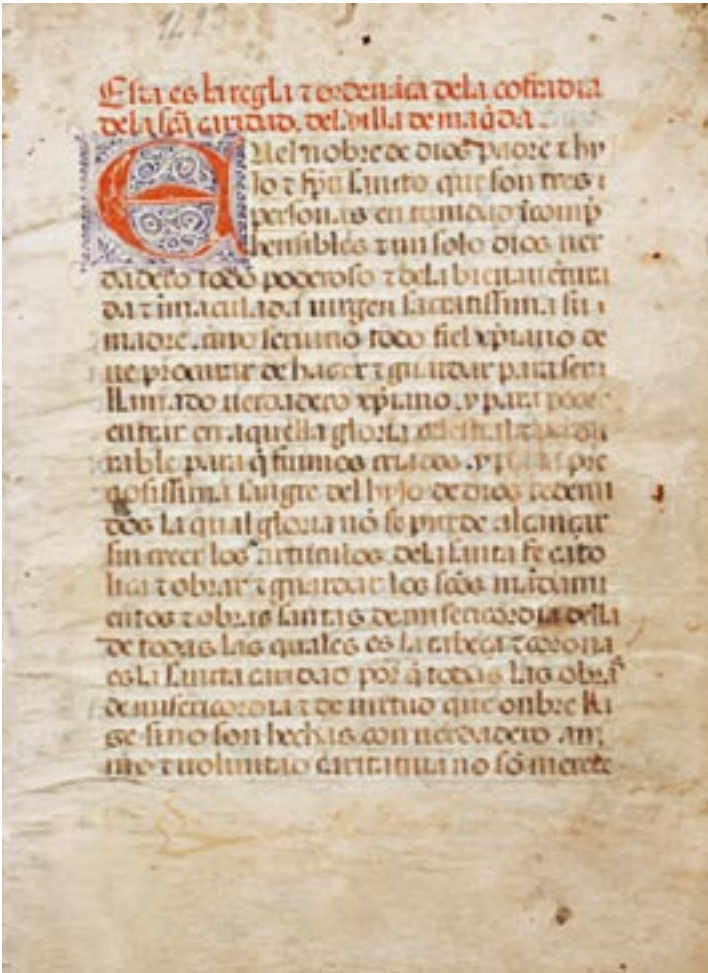 1293
Esta es la regla τ ordenāça dela cofradia
dela scā caridad. dela villa de maq̄da.
En el nōbre de dios padre τ hy
jo τ spū santo que son tres
personas en trinidad īcomp̄
hensibles τ un solo dios ver
dadero todo poderoso τ dela bienauētura
da τ īmaculada uirgen sacratissima su
madre. como todo fiel xp̄iano de
ue procurar de hazer τ guardar para ser
llamado uerdadero xp̄iano. y para poder
entrar en aquella gloria celestial
rable para q̄ fuimos criados. y pre
çiosissima sangre del hijo de dios redemi
dos la qual gloria nō se puede alcançar
sin creer los articulos dela santa fe cato
lica τ obrar τ guardar los scōs mādami
entos τ obras santas de misericordia
de todas las quales es la cabeça τ corona
es la santa caridad por q̄ todas las obras
de misericordia τ de uirtud que onbre ha
ge si no son hechas con uerdadero ani
mo τ uoluntad caritatiua no sō merece